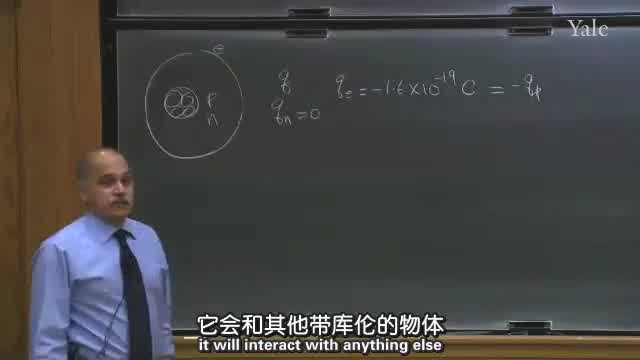 Yale
e
P
n
q
q_e = -1.6 × 10^-19 C = -q_p
q_n = 0
它会和其他带库伦的物体
it will interact with anything else